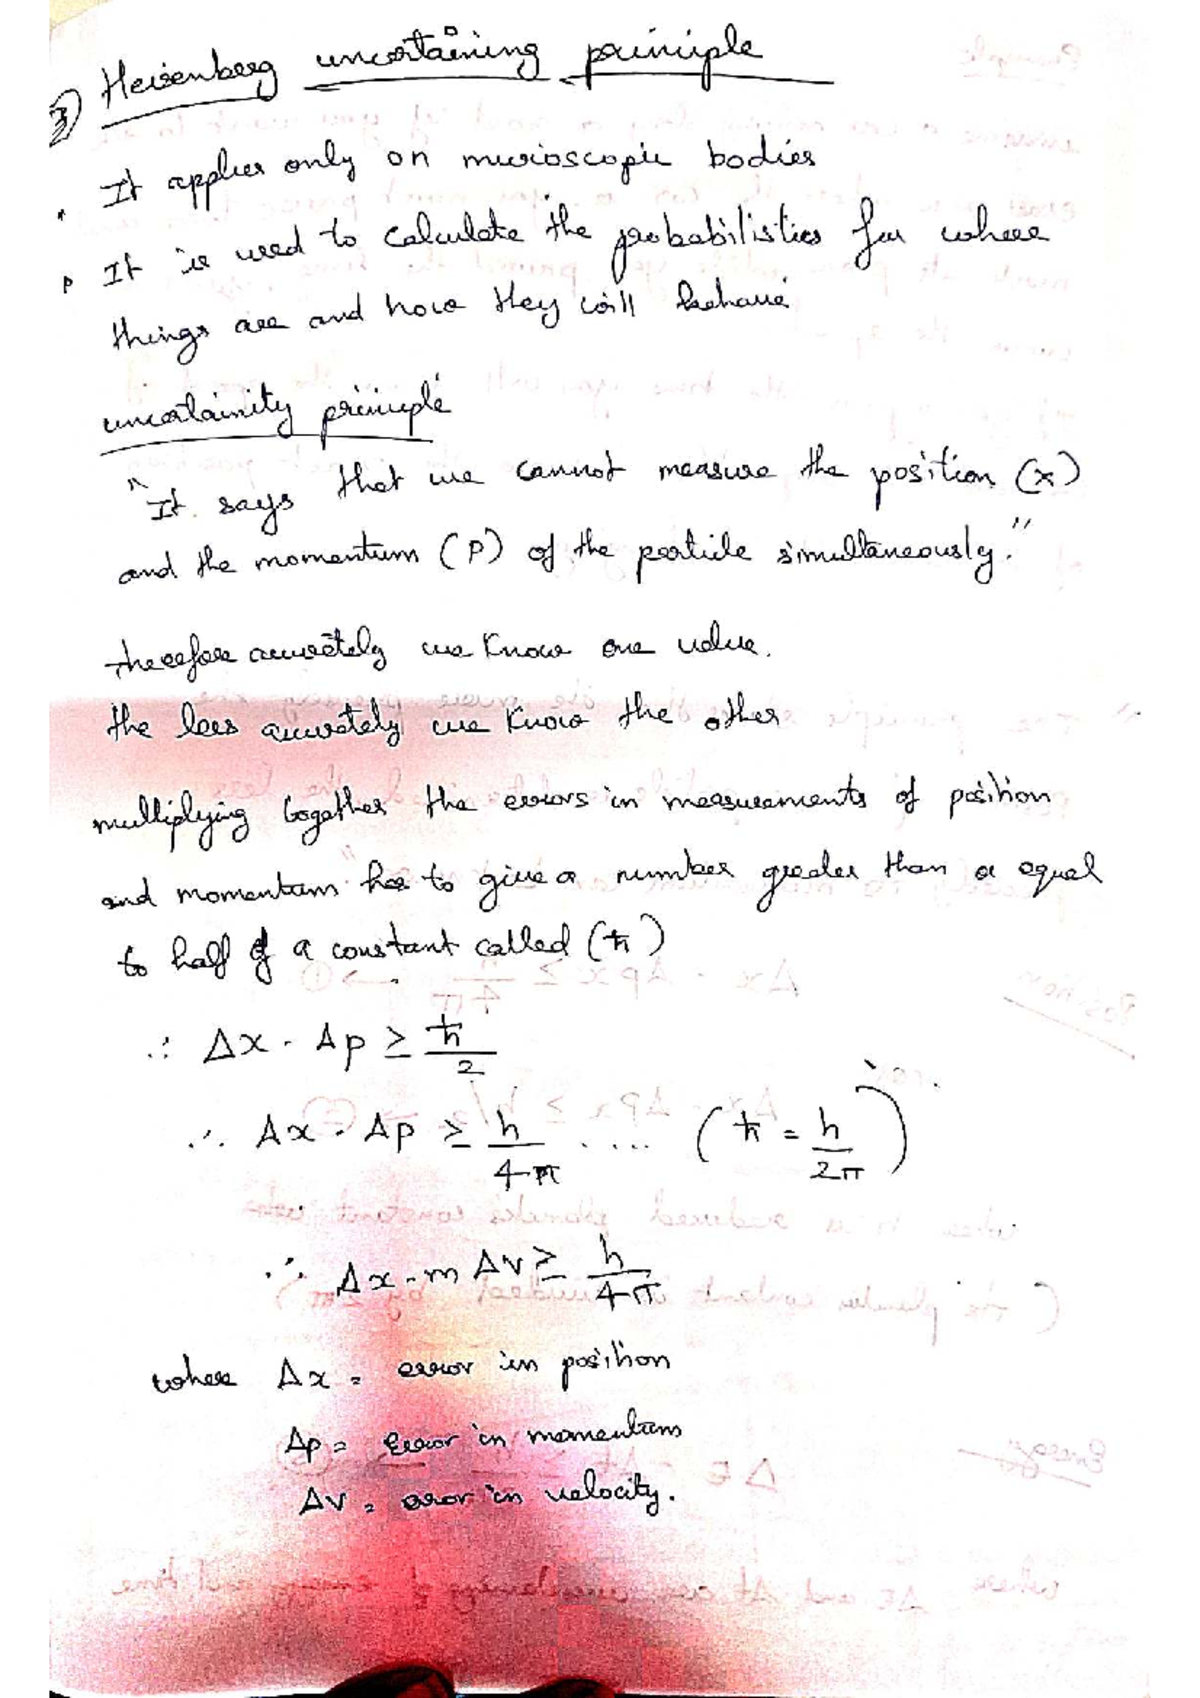 3) Heisenberg uncertaining principle
It applies only on microscopic bodies
It is used to calculate the probabilistics for where
things are and how they will behave
uncertainity principle
"It says that we cannot measure the position (x)
and the momentum (P) of the particle simultaneously."
therefore accurately we know one value.
the less accurately we know the other
multiplying together the errors in measurements of position
and momentum has to give a number greater than or equal
to half of a constant called (ħ)
∴ Δx · Δp ≥ ħ/2
∴ Δx · Δp ≥ h/4π ..... (ħ = h/2π)
∴ Δx · m Δv ≥ h/4π
where Δx = error in position
Δp = Error in momentum
Δv = error in velocity.